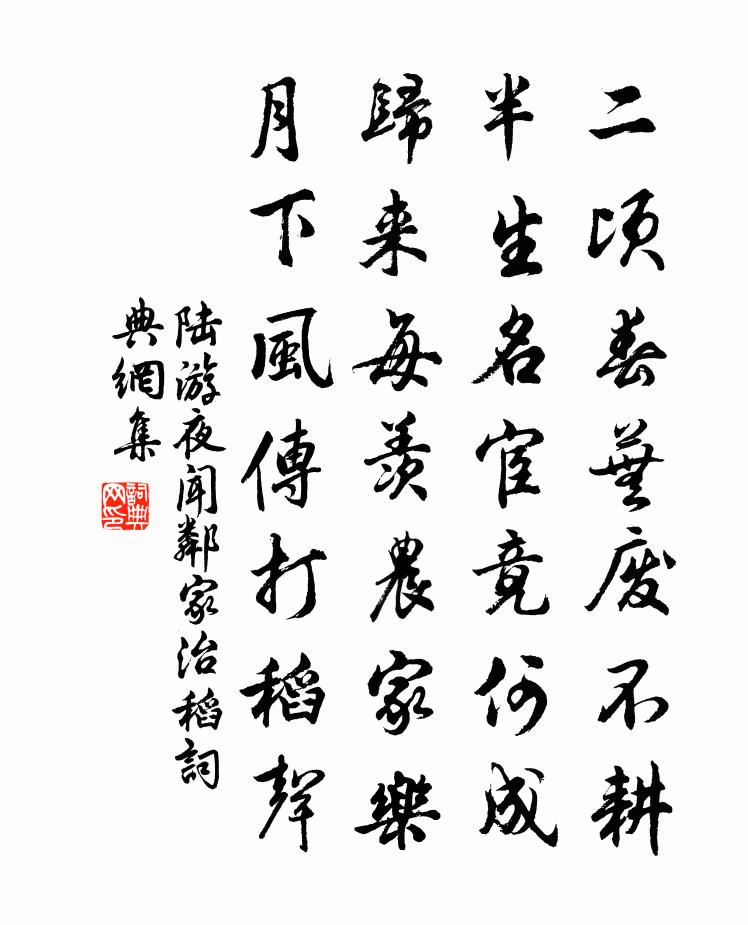 二頃春蕪廢不耕
半生名宦竟何成
歸来每羨農家樂
月下風傳打稻聲
陆游夜闻鄰家治稻詞
典網集
詞典网印